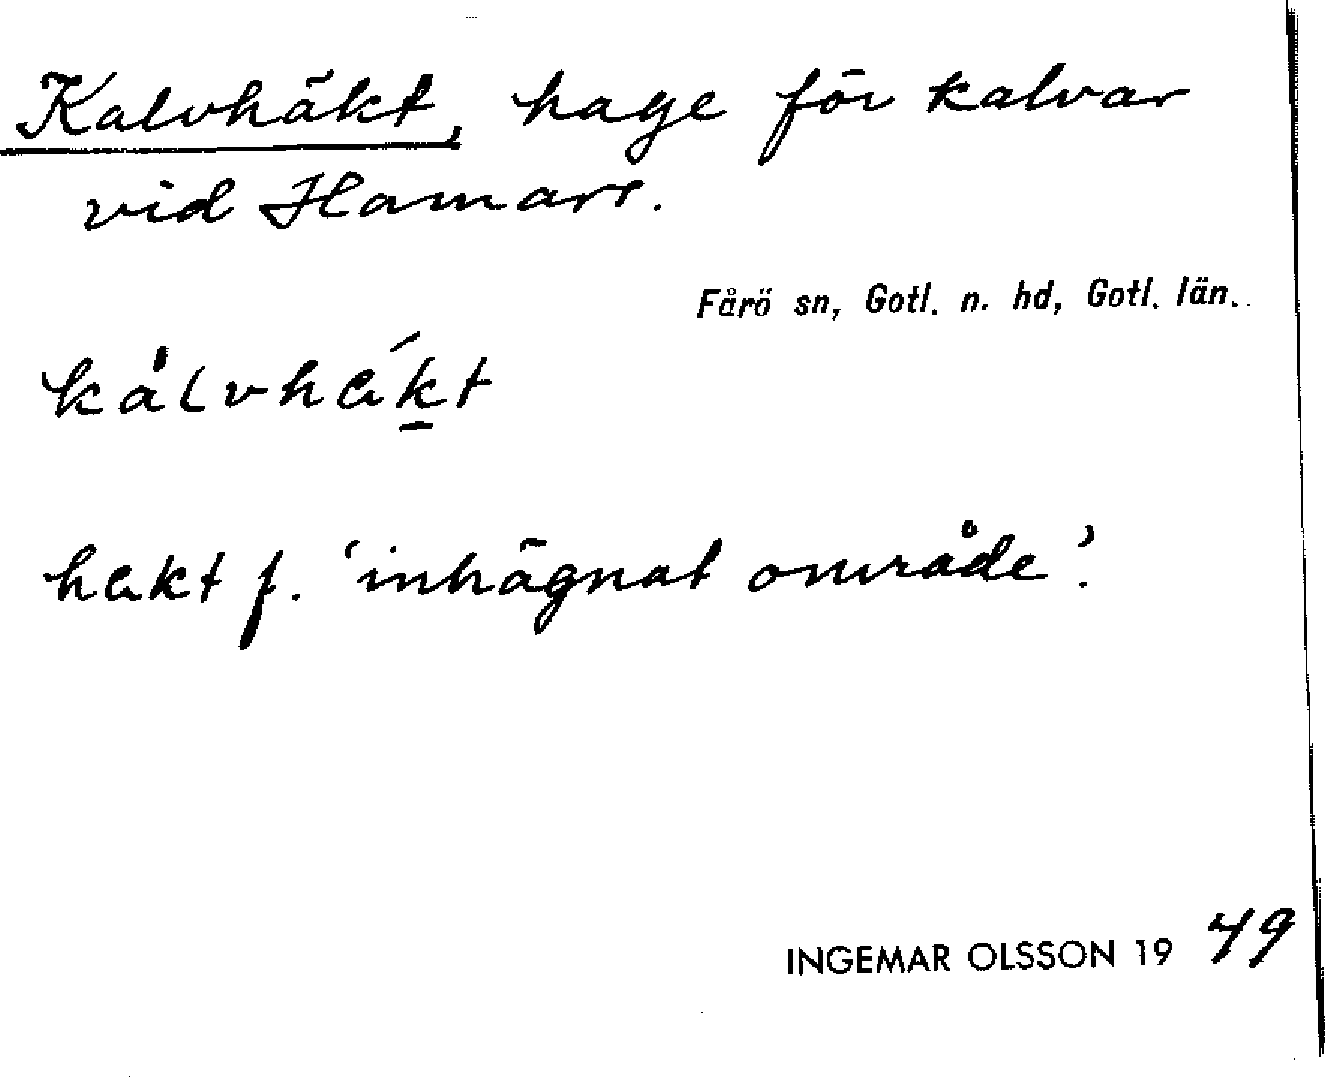 Kalvhäkt, hage för kalvar
vid Hamarr.
Fårö sn, Gotl. n. hd, Gotl. län.
hakt f. 'inhägnat område'.
INGEMAR OLSSON 1949